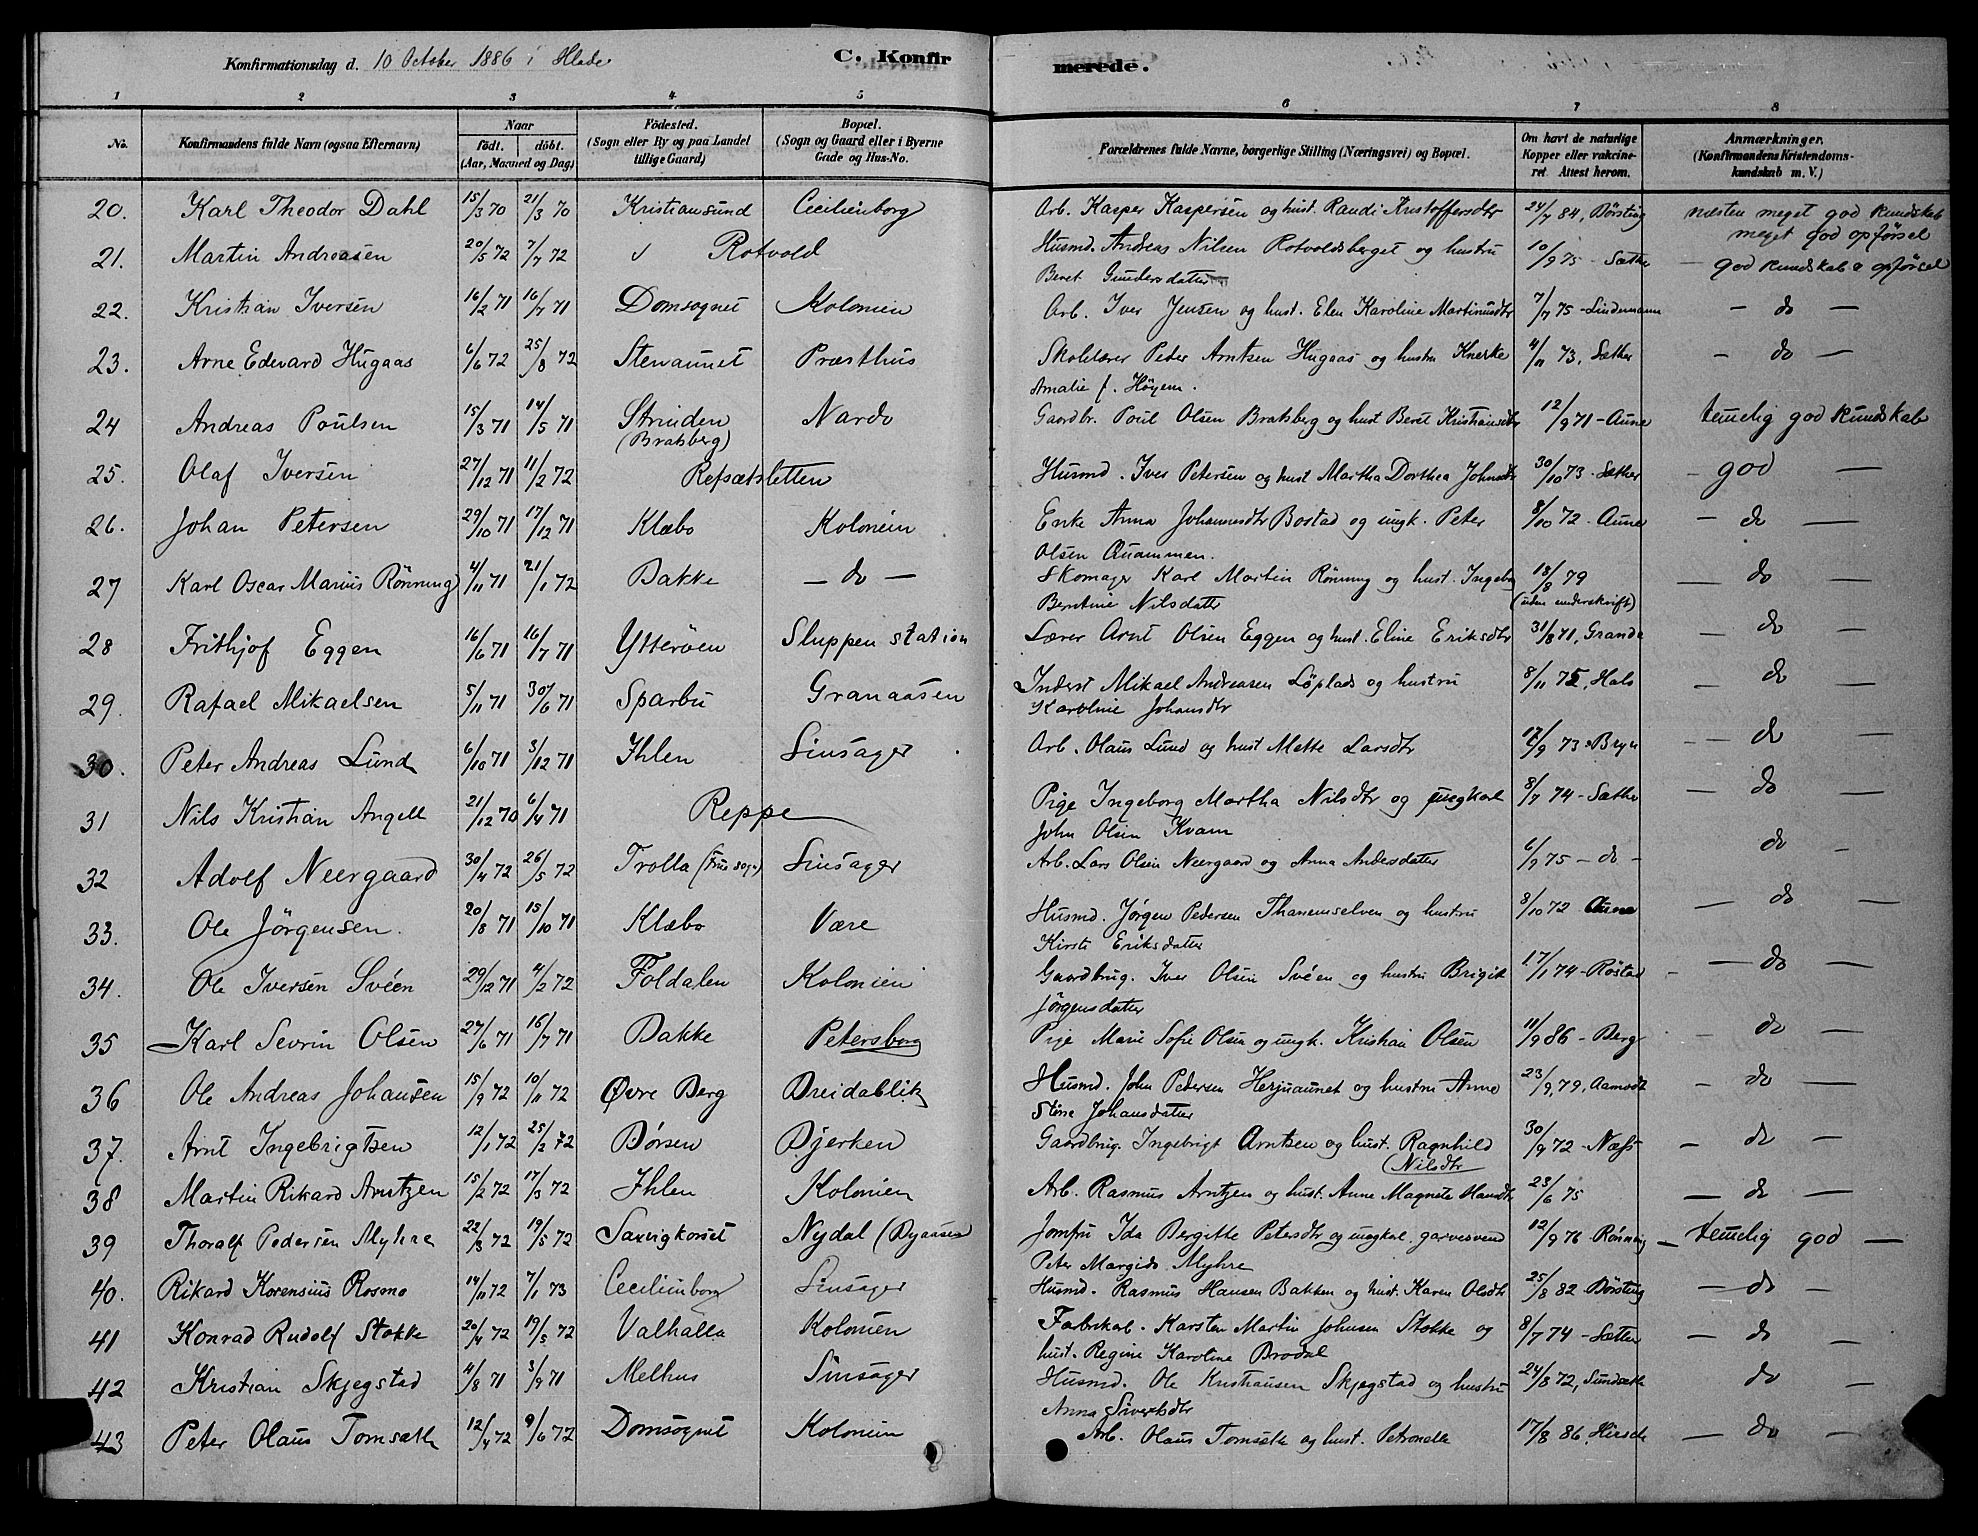 Konfirmationsdag d. 10 October 1886 i Hlade
C. Konfirmerede.
1 2 3 4 5 6 7 8
No. Konfirmandens fulde Navn (ogsaa Efternavn) Naar født. døbt. (Aar, Maaned og Dag) Födested. (Sogn eller By og paa Landet tillige Gaard) Bopæl. (Sogn og Gaard eller i Byerne Gade og Hus-No. Forældrenes fulde Navne, borgerlige Stilling (Næringsvei) og Bopæl. Om havt de naturlige Kopper eller vakcineret. Attest herom. Anmærkninger. (Konfirmandens Kristendomskundskab m. V.)
20. Karl Theodor Dahl 15/3 70 21/3 70 Kristiansund Cecilienborg Arb. Kasper Kaspersen og hust. Randi Kristoffersdtr 24/7 84, Börsting næsten meget god Kundskab meget god opförsel
21. Martin Andreasen 20/5 72 7/7 72 Rotvold Husmd. Andreas Nilsen Rotvoldsberget og hustru Beret Gundersdatter 10/9 75 - Sæther - god Kundskab & opförsel
22. Kristian Iversen 16/2 71 16/7 71 Domsognet Kolonien Arb. Iver Jensen og hust. Elen Karoline Martinusdtr 7/7 75 - Lindemann - do -
23. Arne Edevard Hugaas 6/6 72 25/8 72 Stenaunet Præsthus Skolelærer Peter Arntsen Hugaas og hustru Knerke Amalie f. Höyem. 4/11 73, Sæther - do -
24 Andreas Poulsen 15/3 71 14/5 71 Strinden (Bratsberg) Nardo Gaardbr. Poul Olsen Bratsberg og hust Berit Kristiansdtr 12/9 71 - Aune temelig god Kundskab
25. Olaf Iversen 27/12 71 11/2 72 Refsætsletten Husmd. Iver Petersen og hust Martha Dorthea Johnsdtr 30/10 73 - Sæther - god -
26. Johan Petersen 29/10 71 17/12 71 Klæbo Kolonien Enke Anna Johannesdtr Bostad og ungk. Peter Olsen Quammen. 8/10 72 - Aune - do -
27 Karl Oscar Marius Rönning 4/11 71 21/1 72 Bakke - do - Skomager Karl Martin Rönning og hust. Ingeb. Berntine Nilsdatter 18/8 79 (uden underskrift) - do -
28 Frithjof Eggen 16/6 71 16/7 71 Ytteröen Sluppen station Lærer Arnt Olsen Eggen og hust. Eline Eriksdtr 31/8 71, Grande - do -
29. Rafael Mikaelsen 5/11 71 30/6 71 Sparbu Granaasen Inderst Mikael Andreasen Löplads og hustru Karoline Johansdtr 8/11 75, Hals - do -
30. Peter Andreas Lund 6/10 71 3/12 71 Ihlen Sinsager Arb. Olaus Lund og hust Mette Larsdtr 17/9 73 - Bryn - do -
31 Nils Kristian Angell 21/12 70 6/4 71 Reppe Pige Ingeborg Martha Nilsdtr og ungkarl John Olsen Kvam 8/7 74 - Sæther - do -
32 Adolf Neergaard 30/4 72 26/5 72 Trolla (Frue sogn) Sinsager Arb. Lars Olsen Neergaard og Anna Andersdatter 6/9 75 - do - do -
33. Ole Jörgensen. 20/8 71 15/10 71 Klæbo Være Husmd. Jörgen Pedersen Thanemselven og hustru Kirsti Eriksdatter 8/10 72 Aune - do -
34. Ole Iversen Svéen 29/12 71 4/2 72 Foldalen Kolonien Gaardbrug. Iver Olsen Svéen og hustru Brigit Jörgensdatter 17/1 74 - Röstad - do -
35 Karl Sevrin Olsen 27/6 71 16/7 71 Bakke Petersborg Pige Marie Sofie Olsen og ungk. Kristian Olsen 11/9 86 - Berg - do -
36 Ole Andreas Johansen 15/9 72 10/11 72 Øvre Berg Breidablik Husmd. John Pedersen Herjuaunet og hustru Anne Stine Johansdatter 23/9, 79, Aamodt - do -
37. Arnt Ingebrigtsen 12/1 72 25/2 72 Børsen Bjerken Gaardbrug. Ingebrigt Arntsen og hust. Ragnhild Nilsdtr 30/9 72 - Næss - do -
38 Martin Rikard Arntzen 15/2 72 17/3 72 Ihlen Kolonien Arb. Rasmus Arntzen og hust. Anne Magnete Hansdtr 23/6 75 - do -
39 Thoralf Pedersen Myhre 22/3 72 19/5 72 Saxvigkorset Nydal (Byaasen Jomfru Ida Bergitte Petersdtr og ungkarl. garvesvend Peter Margido Myhre 12/9 76 - Rönning - temelig god -
40. Rikard Korensius Rosmo 14/11 72 7/1 73 Cecilienborg Sinsager Husmd. Rasmus Hansen Bakken og hust. Karen Olsdtr 25/8 82 Börsting - do -
41 Konrad Rudolf Stokke 20/4 72 19/5 72 Valhalla Kolonien Fabrikarb. Karsten Martin Johnsen Stokke og hust. Regine Karoline Brodal 8/7 74 - Sætter - do -
42 Kristian Skjegstad 4/8 71 3/9 71 Melhus Sinsager Husmd. Ole Kristiansen Skjegstad og hustru Anna Sivertsdtr 24/8 72, Sundseth do -
43 Peter Olaus Tomseth 12/4 72 9/6 72 Domsognet Kolonien Arb. Olaus Tomseth og hust. Petronelle 17/8 86, Hirsch - do -